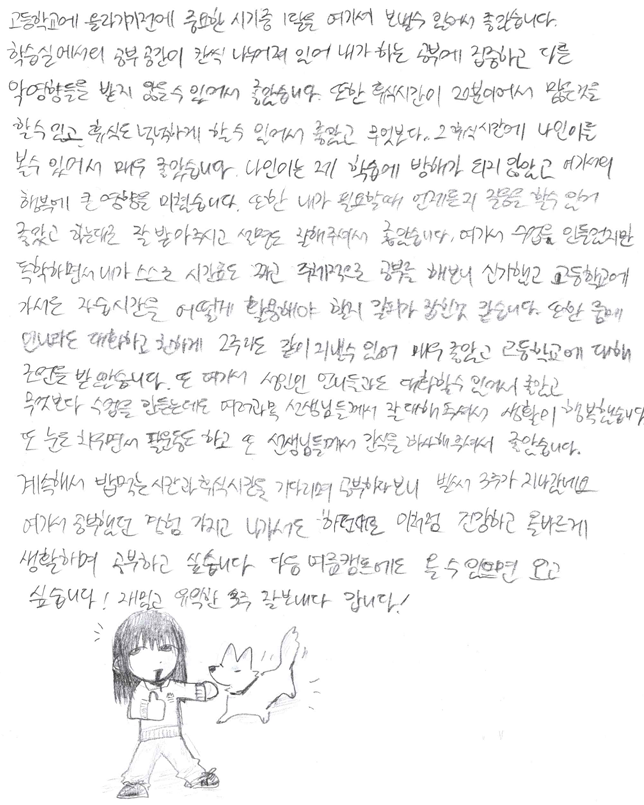 고등학교에 올라가기전에 중요한 시기중 1달을 여기서 보낼수 있어서 좋았습니다.
학습실에서의 공부공간이 칸씩 나누어져 있어 내가 하는 공부에 집중하고 다른
악영향들을 받지 않을수 있어서 좋았습니다. 또한 휴식시간이 20분이어서 많은것을
할수있고 휴식도 넉넉하게 할수 있어서 좋았고 무엇보다.. 그 휴식시간에 나인이를
볼수 있어서 매우 좋았습니다. 나인이는 제 학습에 방해가 되지 않았고 여기서의
행복에 큰 영향을 미쳤습니다. 또한 내가 필요할때 언제든지 질문을 할수 있어
좋았고 하는대로 잘 받아주시고 설명도 잘해주셔서 좋았습니다. 여기서 수업을 안들었지만
독학하면서 내가 스스로 시간표도 짜고 주기적으로 공부를 해보니 신기했고 고등학교에
가서는 자습시간을 어떻게 활용해야 할지 갈피가 잡힌것 같습니다. 또한 룸메
언니라도 대화하고 친하게 2주라도 같이 지낼수 있어 매우 좋았고 고등학교에 대해
조언을 받았습니다. 또 여기서 성인인 언니들과도 대화할수 있어서 좋았고
무엇보다 수업을 안듣는데도 여러과목 선생님들께서 잘 대해 주셔서 생활이 행복했습니다
또 눈도 치우면서 팔운동도 하고 또 선생님들께서 간식을 하사해주셔서 좋았습니다.
계속해서 밥먹는 시간과 휴식시간을 기다리며 공부하자보니 벌써 3주가 지나갔네요
여기서 공부했던 경험 가지고 나가서도 하던대로 이처럼 건강하고 올바르게
생활하며 공부하고 싶습니다 다음 여름캠프에도 올 수 있으면 오고
싶습니다! 재밌고 유익한 3주 잘보내다 갑니다!